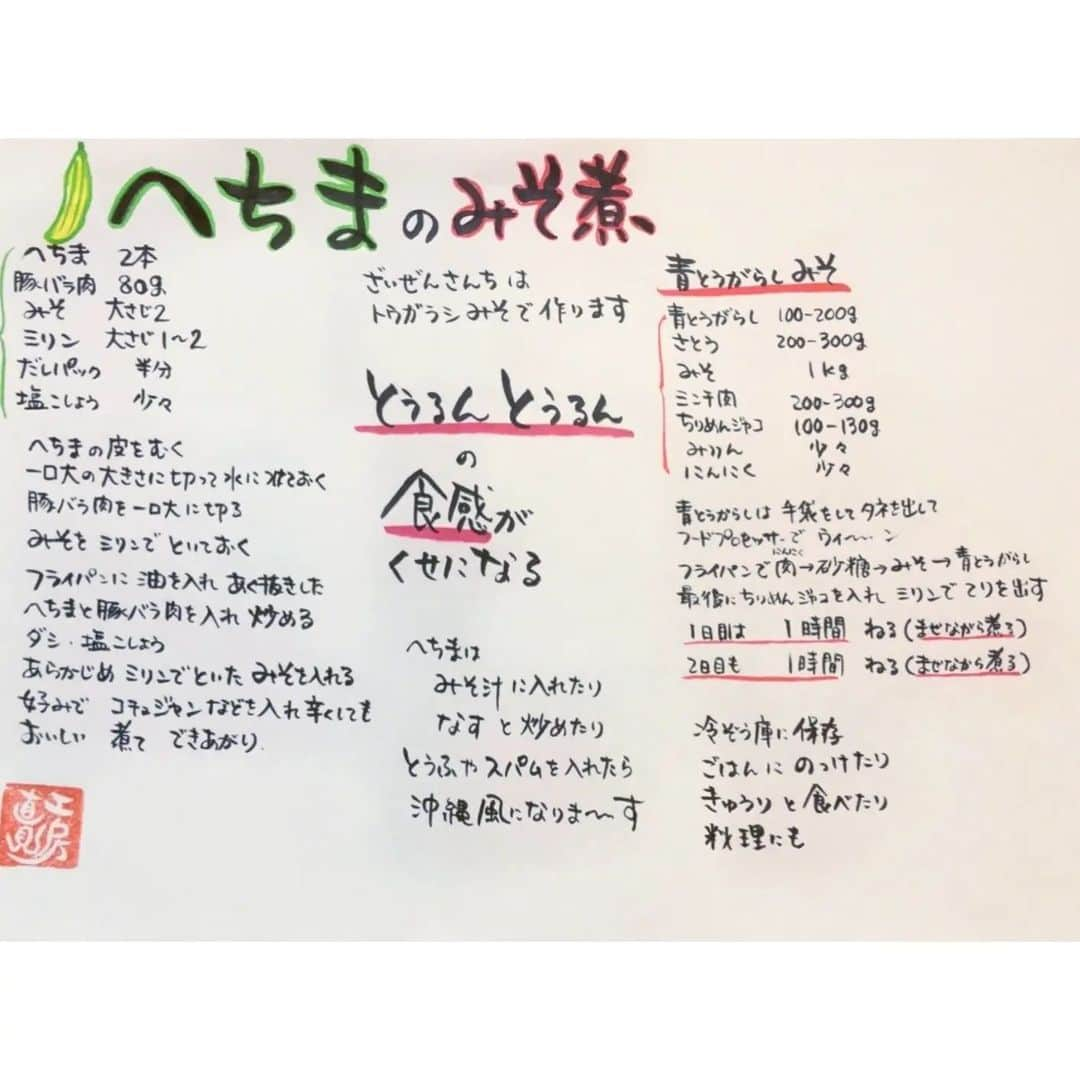 へちまのみそ煮
へちま 2本
豚バラ肉 80g
みそ 大さじ2
ミリン 大さじ1〜2
だしパック 半分
塩こしょう 少々
へちまの皮をむく
一口大の大きさに切って水に漬ておく
豚バラ肉を一口大に切る
みそをミリンでといておく
フライパンに油を入れあく抜きした
へちまと豚バラ肉を入れ炒める
ダシ・塩こしょう
あらかじめミリンでといたみそを入れる
好みでコチュジャンなどを入れ辛くしても
おいしい 煮て できあがり.
ざいぜんさんちは
トウガラシみそで作ります
とぅるんとぅるん
の
食感が
くせになる
へちまは
みそ汁に入れたり
なすと炒めたり
とうふやスパムを入れたら
沖縄風になりま〜す
青とうがらしみそ
青とうがらし 100-200g
さとう 200-300g
みそ 1kg
ミンチ肉 200-300g
ちりめんジャコ 100-130g
みりん 少々
にんにく 少々
青とうがらしは手袋をしてタネを出して
フードプロセッサーでウィ〜〜ン
にんにく
フライパンで肉→砂糖→みそ→青とうがらし
最後にちりめんジャコを入れミリンでてりを出す
1日目は 1時間 ねる(まぜながら煮る)
2日目も 1時間 ねる(まぜながら煮る)
冷ぞう庫に保存
ごはんにのっけたり
きゅうりと食べたり
料理にも